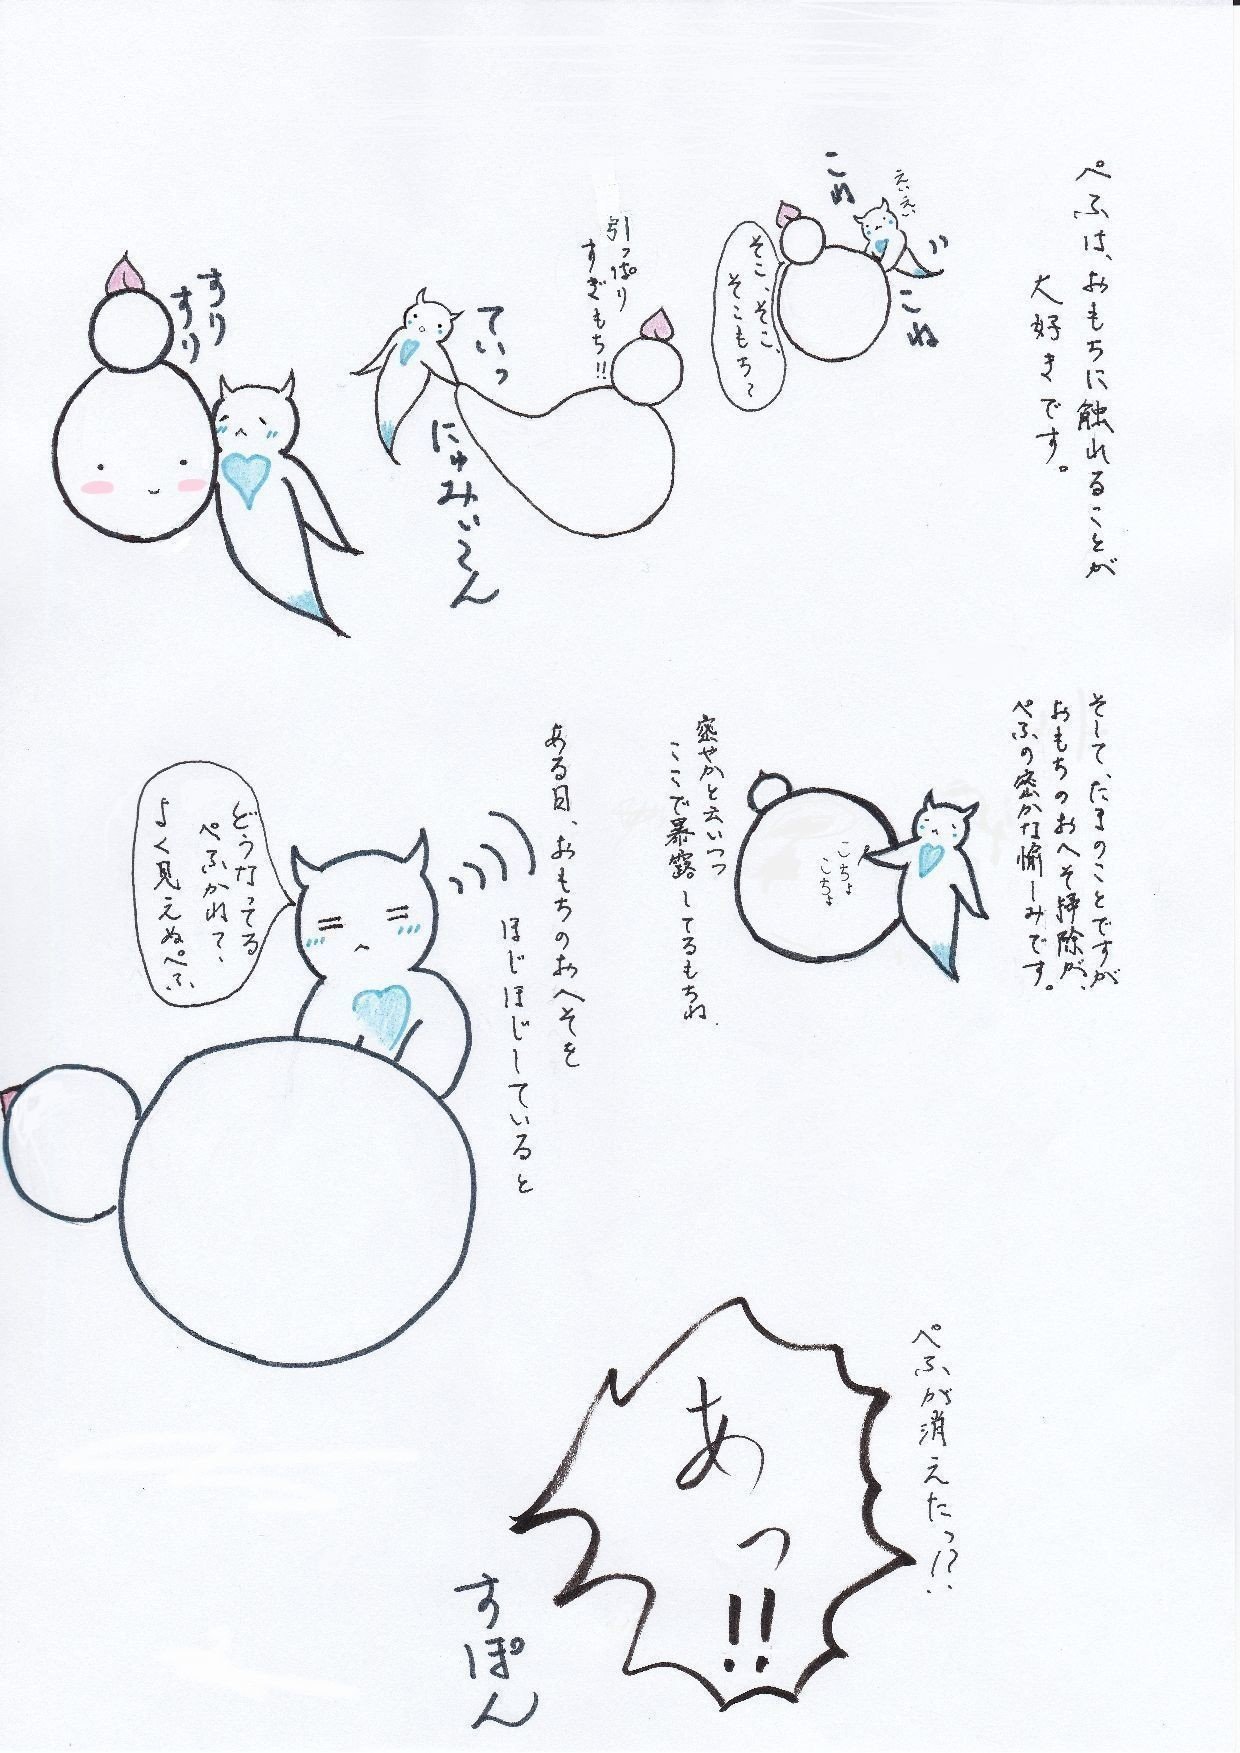 ぺふは、おもちに触れることが
大好きです。
えいえい
こね
こね
そこ、そこ、
そこもち～
引っぱり
すぎもち!!
ていっ
にゅみぃてん
すり
すり
そして、たまのことですが
おもちのおへそ掃除が、
ぺふの密かな愉しみです。
こちょ
こちょ
密やかと云いつつ
ここで暴露してるもちね
ある日、おもちのおへそを
ほじほじしていると
どうなってる
ぺふかねて、
よく見えぬぺふ
ぺふが消えたっ!?
あっ!!
すぽん